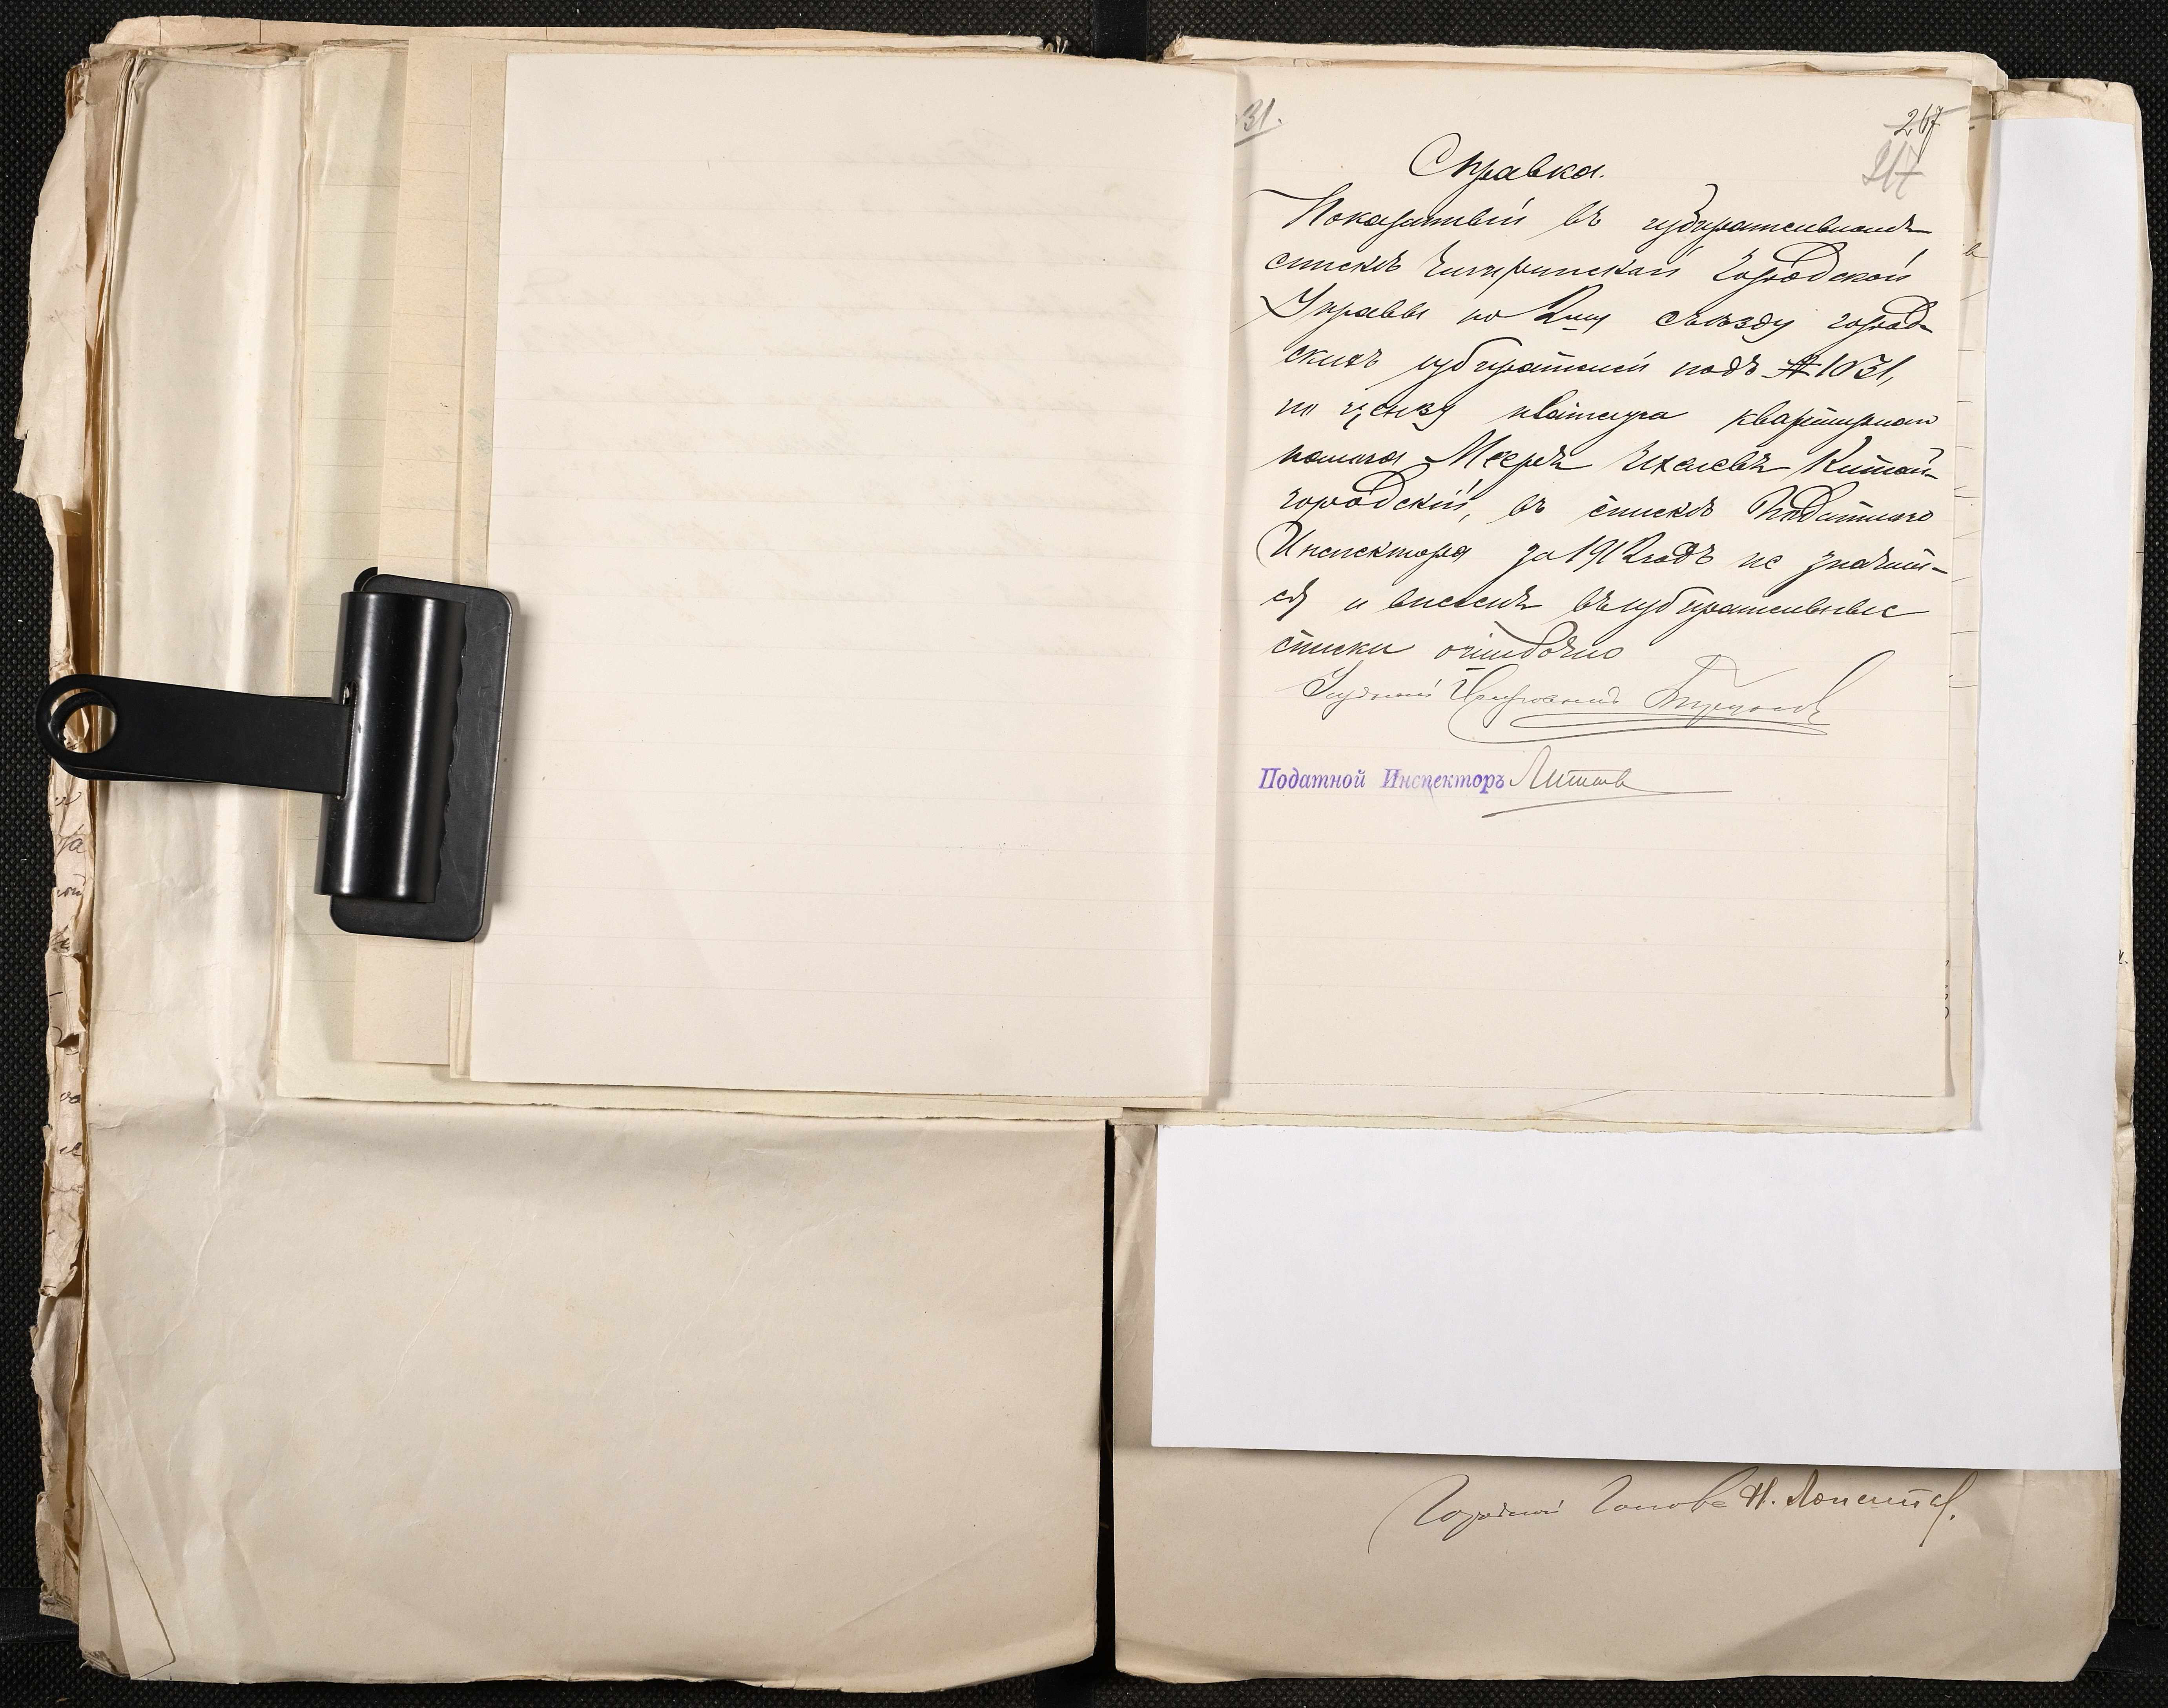 31.
267
217
Справка.
Показанный въ избирательномъ
спискѣ Чигиринской Городской
Управы по 2му съѣзду город-
скихъ избирателей подъ № 1031,
по цензу платежа квартирнаго
налога Мееръ Ихелевъ Китай-
городскій, въ спискѣ Податного
Инспектора за 1912 годъ не значит-
ся и внесенъ въ избирательные
списки ошибочно
Уѣздный Исправникъ
Податной Инспекторъ
Городской Голова Н.